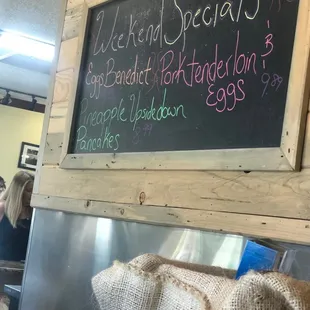 Weekend Specials
Eggs Benedict Pork tenderloin &
Eggs 9.89
Pineapple Upsidedown
Pancakes 9.99